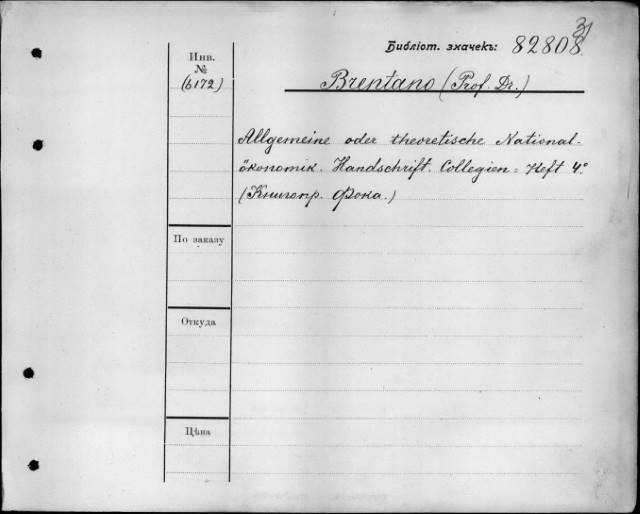 31
Библіот. значекъ: 82808.
Инв.
№
(6172)
Brentano (Prof. Dr.)
Allgemeine oder theoretische National-
ökonomik. Handschrift. Collegien-Heft 4°
(Книгопр. Фока.)
По заказу
Откуда
Цѣна